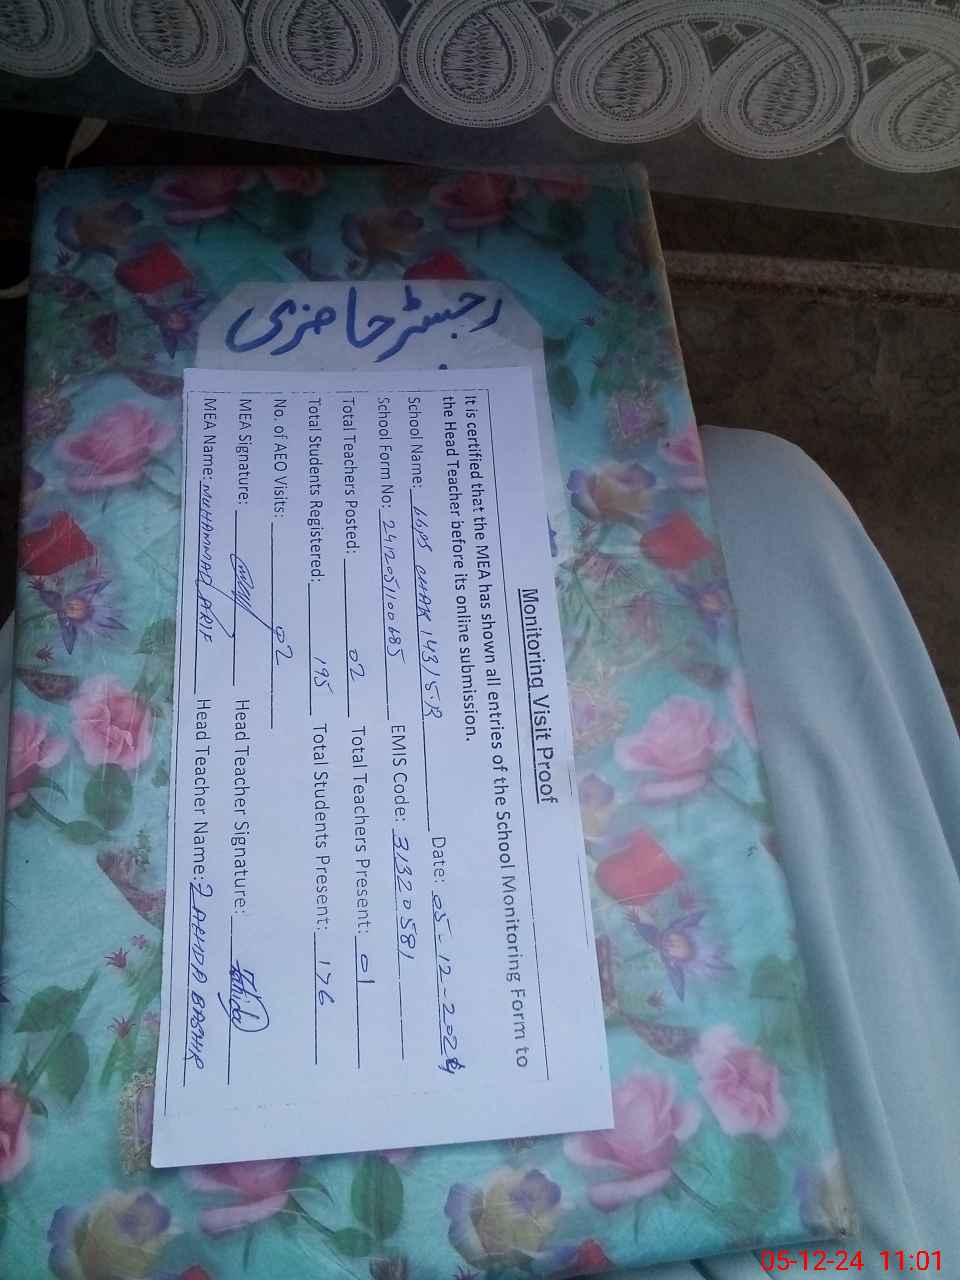 رجسٹر حاضری
Monitoring Visit Proof
It is certified that the MEA has shown all entries of the School Monitoring Form to
the Head Teacher before its online submission.
School Name: GGPS CHAK 143/5.R Date: 05-12-2024
School Form No: 2412051100685 EMIS Code: 31320581
Total Teachers Posted: 02 Total Teachers Present: 01
Total Students Registered: 195 Total Students Present: 176
No. of AEO Visits: 02
MEA Signature: Head Teacher Signature:
MEA Name: MUHAMMAD ARIF Head Teacher Name: ZAHIDA BASHIR
05-12-24 11:01